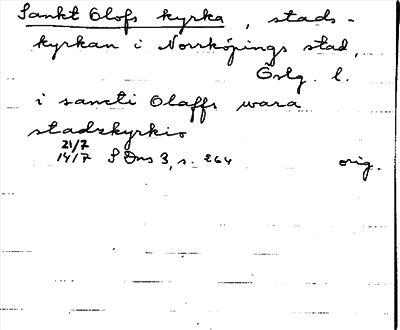 Sankt Olofs kyrka, stads-
kyrkan i Norrköpings stad,
Östg. l.
i sancti Olaffs wara
stadzkyrkio
21/7
14/7 SDns 3, s. 264 orig.